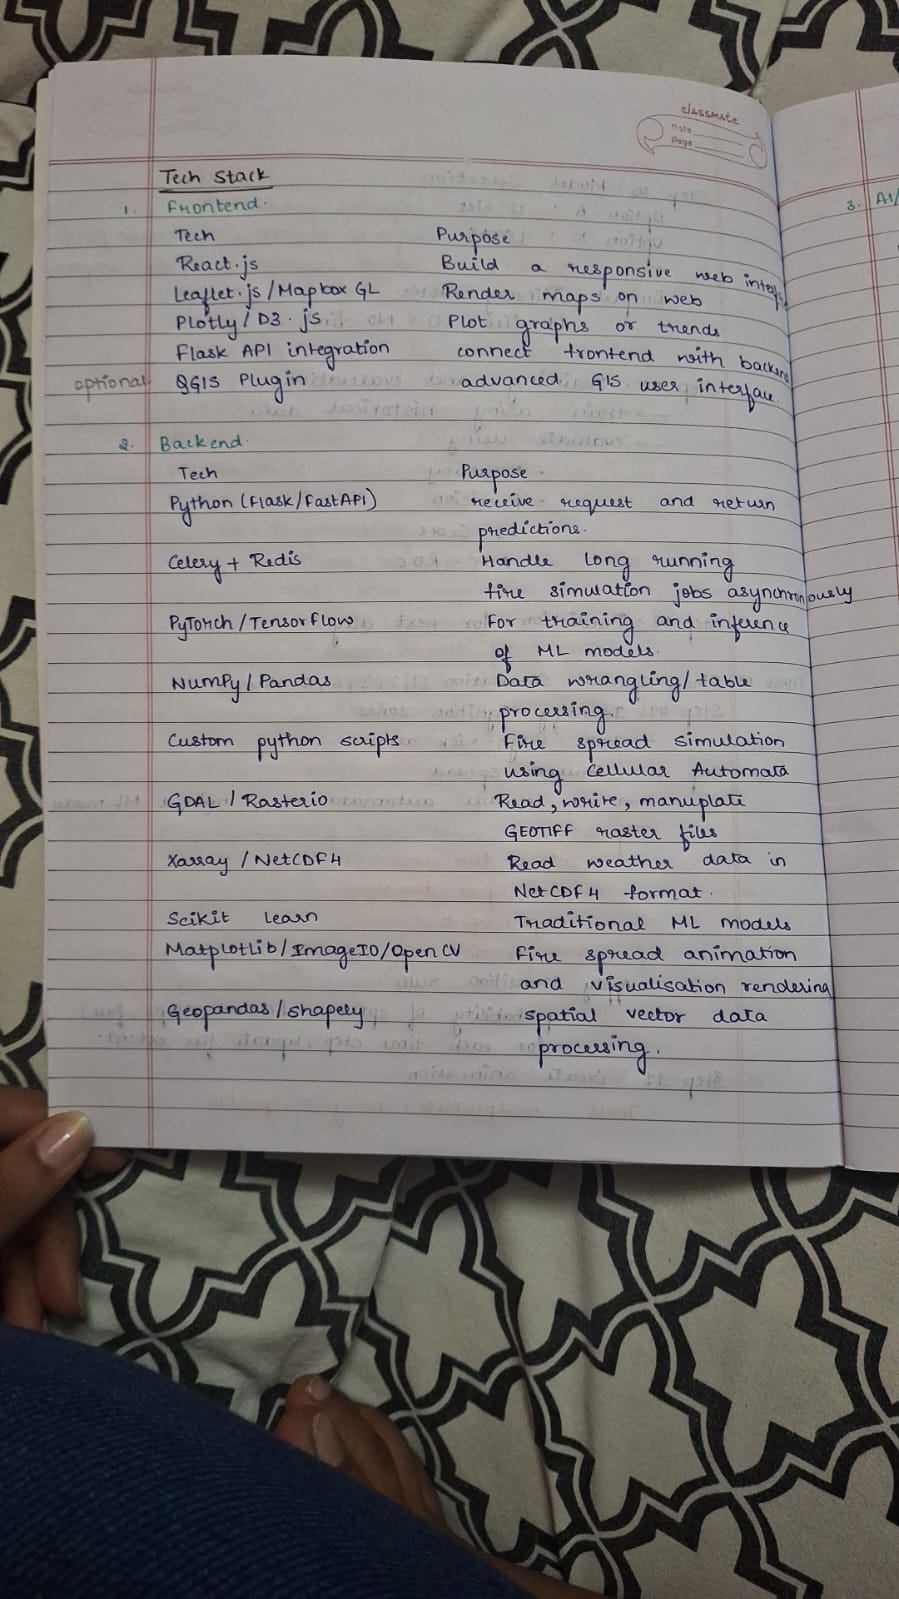 classmate
Date
Page
Tech Stack
1. Frontend.
Tech Purpose
React.js Build a responsive web interface
Leaflet.js/Mapbox GL Render maps on web
Plotly/D3.js Plot graphs or trends
Flask API integration connect frontend with backend
optional QGIS Plugin advanced GIS user interface.
2. Backend.
Tech Purpose
Python (Flask/FastAPI) receive request and return
predictions.
Celery + Redis Handle long running
fire simulation jobs asynchronously
PyTorch/TensorFlow For training and inference
of ML models.
NumPy/Pandas Data wrangling/table
processing.
Custom python scripts Fire spread simulation
using Cellular Automata
GDAL/Rasterio Read, write, manuplate
GEOTIFF raster files
Xarray/NetCDF4 Read weather data in
NetCDF4 format.
Scikit Learn Traditional ML models
Matplotlib/ImageIO/OpenCV Fire spread animation
and visualisation rendering
Geopandas/shapely spatial vector data
processing.
3. AI/